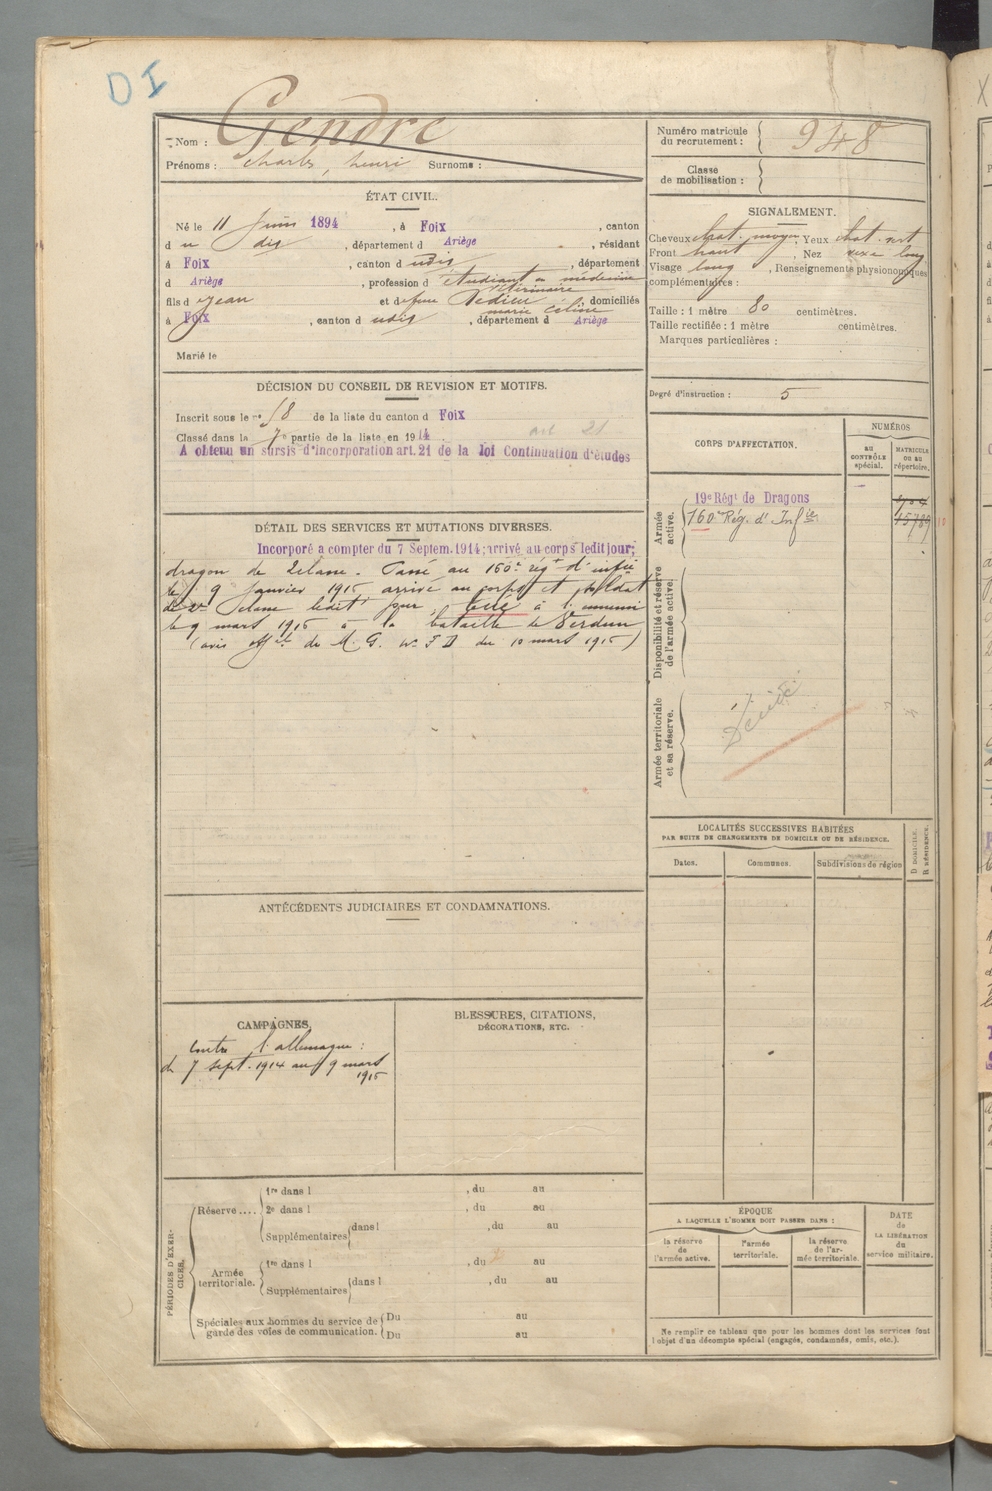 DI
Nom : Gendre
Prénoms : Charles, henri Surnoms :
Numéro matricule du recrutement : 948
Classe de mobilisation :
ÉTAT CIVIL.
Né le 11 Juin 1894, à Foix, canton
du dis, département d Ariège, résidant
à Foix, canton d udis, département
d Ariège, profession d'étudiant en médecine
vétérinaire
fils d Jean et de feue Dedieu, domiciliés
marie Céline
à Foix, canton d udis, département d Ariège
Marié le
SIGNALEMENT.
Cheveux chat. moyen, Yeux chat. vert
Front haut, Nez long
Visage long, Renseignements physionomiques
complémentaires :
Taille : 1 mètre 80 centimètres.
Taille rectifiée : 1 mètre centimètres.
Marques particulières :
Degré d'instruction : 5
DÉCISION DU CONSEIL DE REVISION ET MOTIFS.
Inscrit sous le n° 58 de la liste du canton d Foix
Classé dans la 7e partie de la liste en 1914 art 21
A obtenu un sursis d'incorporation art. 21 de la loi Continuation d'études
DÉTAIL DES SERVICES ET MUTATIONS DIVERSES.
Incorporé a compter du 7 Septem. 1914; arrivé au corps ledit jour;
dragon de 2e classe. Passé au 160e régt d'infie
le 9 Janvier 1915 arrivé au corps et soldat
de 2e classe ledit jour, tué à l'ennemi
le 9 mars 1915 à la bataille de Verdun
(avis offiel de M. G. n° F D du 10 mars 1915)
CORPS D'AFFECTATION.
NUMÉROS
AU CONTRÔLE spécial.
MATRICULE OU AU répertoire.
Armée active.
19e Régt de Dragons
160e Rég. d'Infie 15789
Disponibilité et réserve de l'armée active.
Armée territoriale et sa réserve.
Décédé
LOCALITÉS SUCCESSIVES HABITÉES
PAR SUITE DE CHANGEMENTS DE DOMICILE OU DE RÉSIDENCE.
Dates. Communes. Subdivisions de région D DOMICILE. R RÉSIDENCE.
ANTÉCÉDENTS JUDICIAIRES ET CONDAMNATIONS.
CAMPAGNES.
Contre l'allemagne :
du 7 sept. 1914 au 9 mars
1915
BLESSURES, CITATIONS,
DÉCORATIONS, ETC.
PÉRIODES D'EXERCICES.
Réserve.... 1re dans l , du au
2e dans l , du au
Supplémentaires dans l , du au
Armée territoriale. 1re dans l , du au
Supplémentaires dans l , du au
Spéciales aux hommes du service de garde des voies de communication. Du au
Du au
ÉPOQUE
A LAQUELLE L'HOMME DOIT PASSER DANS :
la réserve de l'armée active.
l'armée territoriale.
la réserve de l'armée territoriale.
DATE de LA LIBÉRATION du service militaire.
Ne remplir ce tableau que pour les hommes dont les services font
l'objet d'un décompte spécial (engagés, condamnés, omis, etc.).